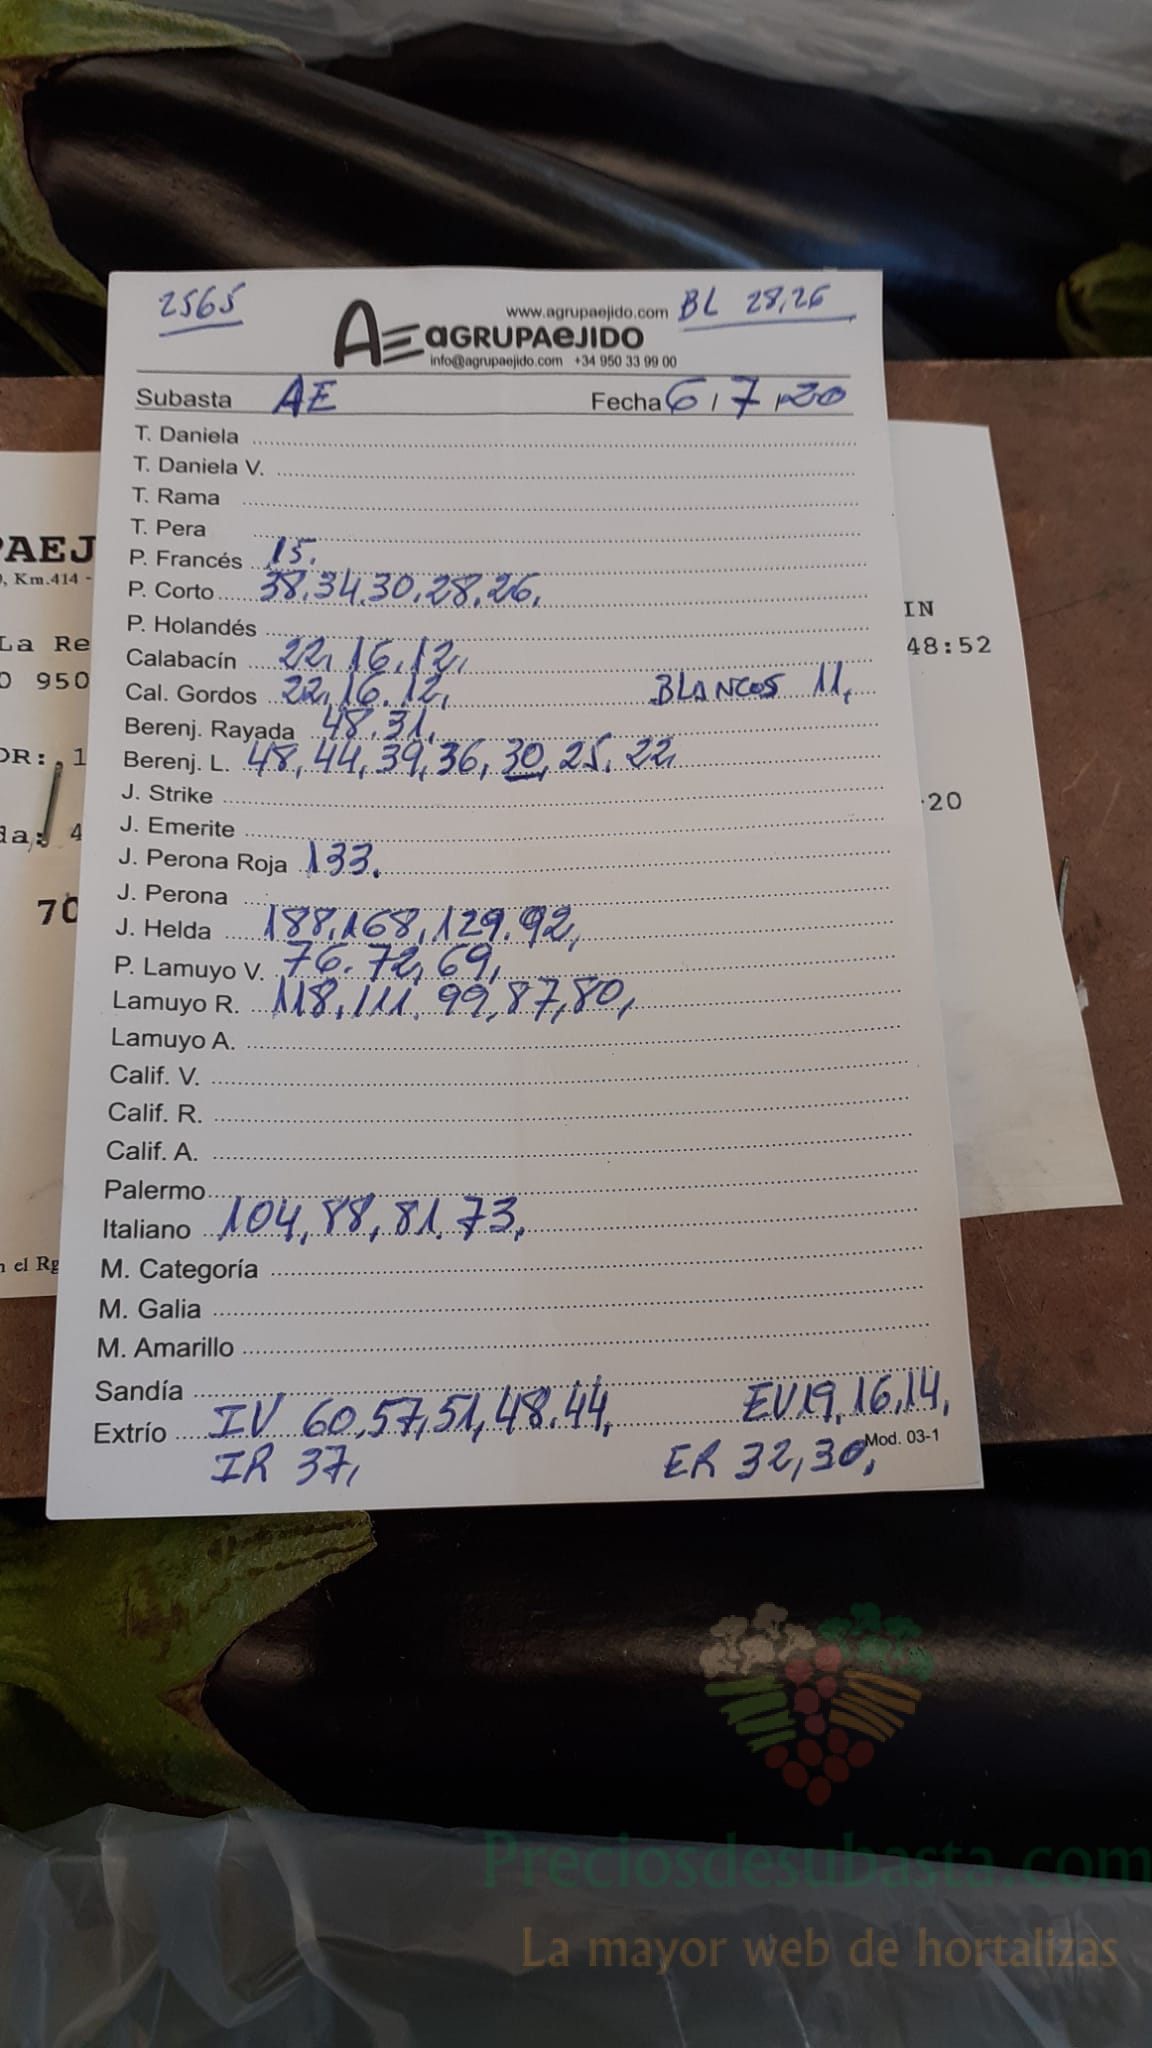 2565
www.agrupaejido.com
BL 28,26
AE AGRUPAEJIDO
info@agrupaejido.com +34 950 33 99 00
Subasta AE Fecha 6 / 7 / 20
T. Daniela
T. Daniela V.
T. Rama
T. Pera
P. Francés 15.
P. Corto 38.34.30.28.26.
P. Holandés
Calabacín 22,16.12,
Cal. Gordos 22,16.12, BLANCOS 11,
Berenj. Rayada 48.31,
Berenj. L. 48,44,39,36,30,25,22
J. Strike
J. Emerite
J. Perona Roja 133.
J. Perona
J. Helda 188,168,129.92,
P. Lamuyo V. 76.72,69,
Lamuyo R. 118,111.99,87,80,
Lamuyo A.
Calif. V.
Calif. R.
Calif. A.
Palermo
Italiano 104,88,81.73,
M. Categoría
M. Galia
M. Amarillo
Sandía
Extrío IV 60,57,51,48.44, EV 19,16,14,
IR 37, ER 32,30,
Mod. 03-1
PAEJ
, Km.414 -
La Re
0 950
OR: 1
da: 4
70
n el Rg
IN
48:52
-20
Preciosdesubasta.com
La mayor web de hortalizas